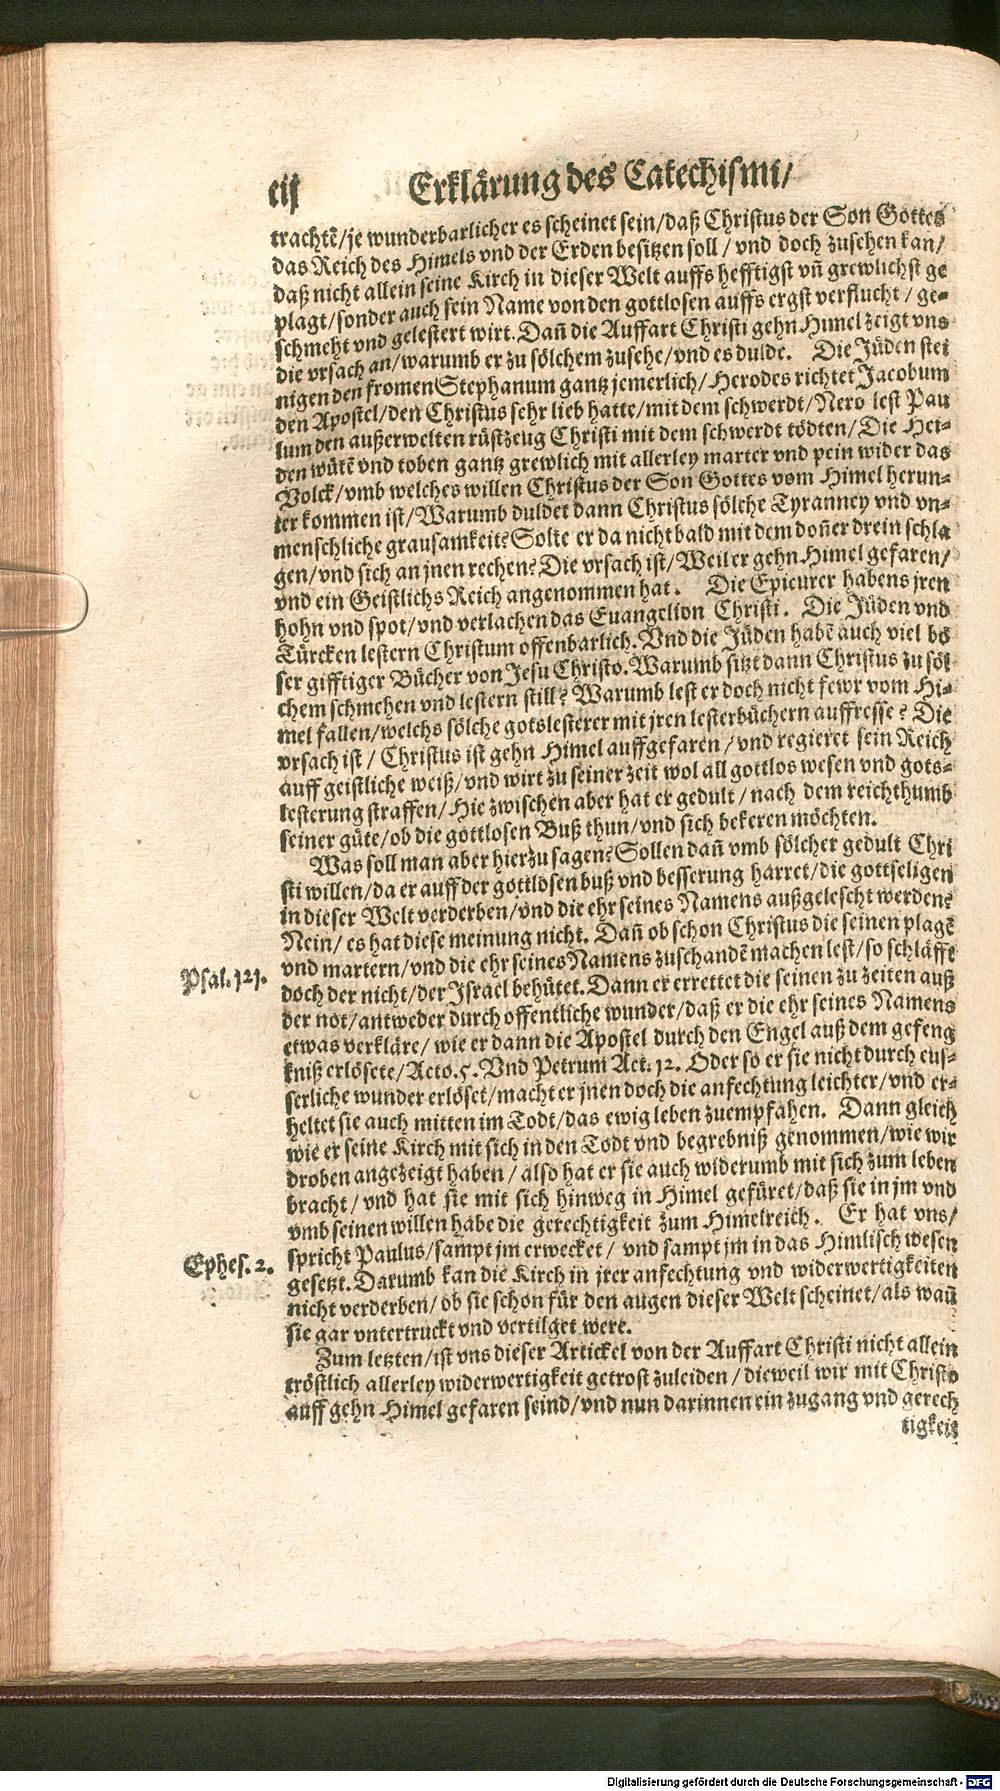 cij Erklärung des Catechismi/
trachtẽ/je wunderbarlicher es scheinet sein/daß Christus der Son Gottes
das Reich des Himels vnd der Erden besitzen soll / vnd doch zusehen kan/
daß nicht allein seine Kirch in dieser Welt auffs hefftigst vñ grewlichst ge
plagt/sonder auch sein Name von den gottlosen auffs ergst verflucht / ge-
schmeht vnd gelestert wirt. Dañ die Auffart Christi gehn Himel zeigt vns
die vrsach an/warumb er zu sölchem zusehe/vnd es dulde. Die Jüden stei
nigen den fromen Stephanum gantz jemerlich/Herodes richtet Jacobum
den Apostel/den Christus sehr lieb hatte/mit dem schwerdt/Nero lest Pau
lum den außerwelten rüstzeug Christi mit dem schwerdt tödten/Die Hei-
den wütẽ vnd toben gantz grewlich mit allerley marter vnd pein wider das
Volck/vmb welches willen Christus der Son Gottes vom Himel herun-
ter kommen ist/Warumb duldet dann Christus sölche Tyranney vnd vn-
menschliche grausamkeit? Solte er da nicht bald mit dem doñer drein schla
gen/vnd sich an jnen rechen? Die vrsach ist/Weil er gehn Himel gefaren/
vnd ein Geistlichs Reich angenommen hat. Die Epicurer habens jren
hohn vnd spot/vnd verlachen das Euangelion Christi. Die Jüden vnd
Türcken lestern Christum offenbarlich. Vnd die Jüden habẽ auch viel bö
ser gifftiger Bücher von Jesu Christo. Warumb sitzt dann Christus zu söl
chem schmehen vnd lestern still? Warumb lest er doch nicht fewr vom Hi-
mel fallen/welchs sölche gotslesterer mit jren lesterbüchern auffresse? Die
vrsach ist / Christus ist gehn Himel auffgefaren /vnd regieret sein Reich
auff geistliche weiß/vnd wirt zu seiner zeit wol all gottlos wesen vnd gots-
lesterung straffen/Hie zwischen aber hat er gedult / nach dem reichthumb
seiner güte/ob die gottlosen Buß thun/vnd sich bekeren möchten.
Was soll man aber hierzu sagen? Sollen dañ vmb sölcher gedult Chri
sti willen/da er auff der gottlosen buß vnd besserung harret/die gottseligen
in dieser Welt verderben/vnd die ehr seines Namens außgelescht werden?
Nein/es hat diese meinung nicht. Dañ ob schon Christus die seinen plagẽ
vnd martern/vnd die ehr seines Namens zuschandẽ machen lest/so schläfft
Psal. 121. doch der nicht/der Israel behütet. Dann er errettet die seinen zu zeiten auß
der not/antweder durch offentliche wunder/daß er die ehr seines Namens
etwas verkläre/ wie er dann die Apostel durch den Engel auß dem gefeng
kniß erlösete/Acto. 5. Vnd Petrum Act. 12. Oder so er sie nicht durch eus-
serliche wunder erlöset/macht er jnen doch die anfechtung leichter/vnd er-
heltet sie auch mitten im Todt/das ewig leben zuempfahen. Dann gleich
wie er seine Kirch mit sich in den Todt vnd begrebniß genommen/wie wir
droben angezeigt haben / also hat er sie auch widerumb mit sich zum leben
bracht / vnd hat sie mit sich hinweg in Himel gefüret/daß sie in jm vnd
vmb seinen willen habe die gerechtigkeit zum Himelreich. Er hat vns/
Ephes. 2. spricht Paulus/sampt jm erwecket / vnd sampt jm in das Himlisch wesen
gesetzt. Darumb kan die Kirch in jrer anfechtung vnd widerwertigkeiten
nicht verderben/ob sie schon für den augen dieser Welt scheinet/als wañ
sie gar vntertruckt vnd vertilget were.
Zum letzten/ist vns dieser Artickel von der Auffart Christi nicht allein
tröstlich allerley widerwertigkeit getrost zuleiden / dieweil wir mit Christo
auff gehn Himel gefaren seind/vnd nun darinnen ein zugang vnd gerech
tigkeit
Digitalisierung gefördert durch die Deutsche Forschungsgemeinschaft - DFG